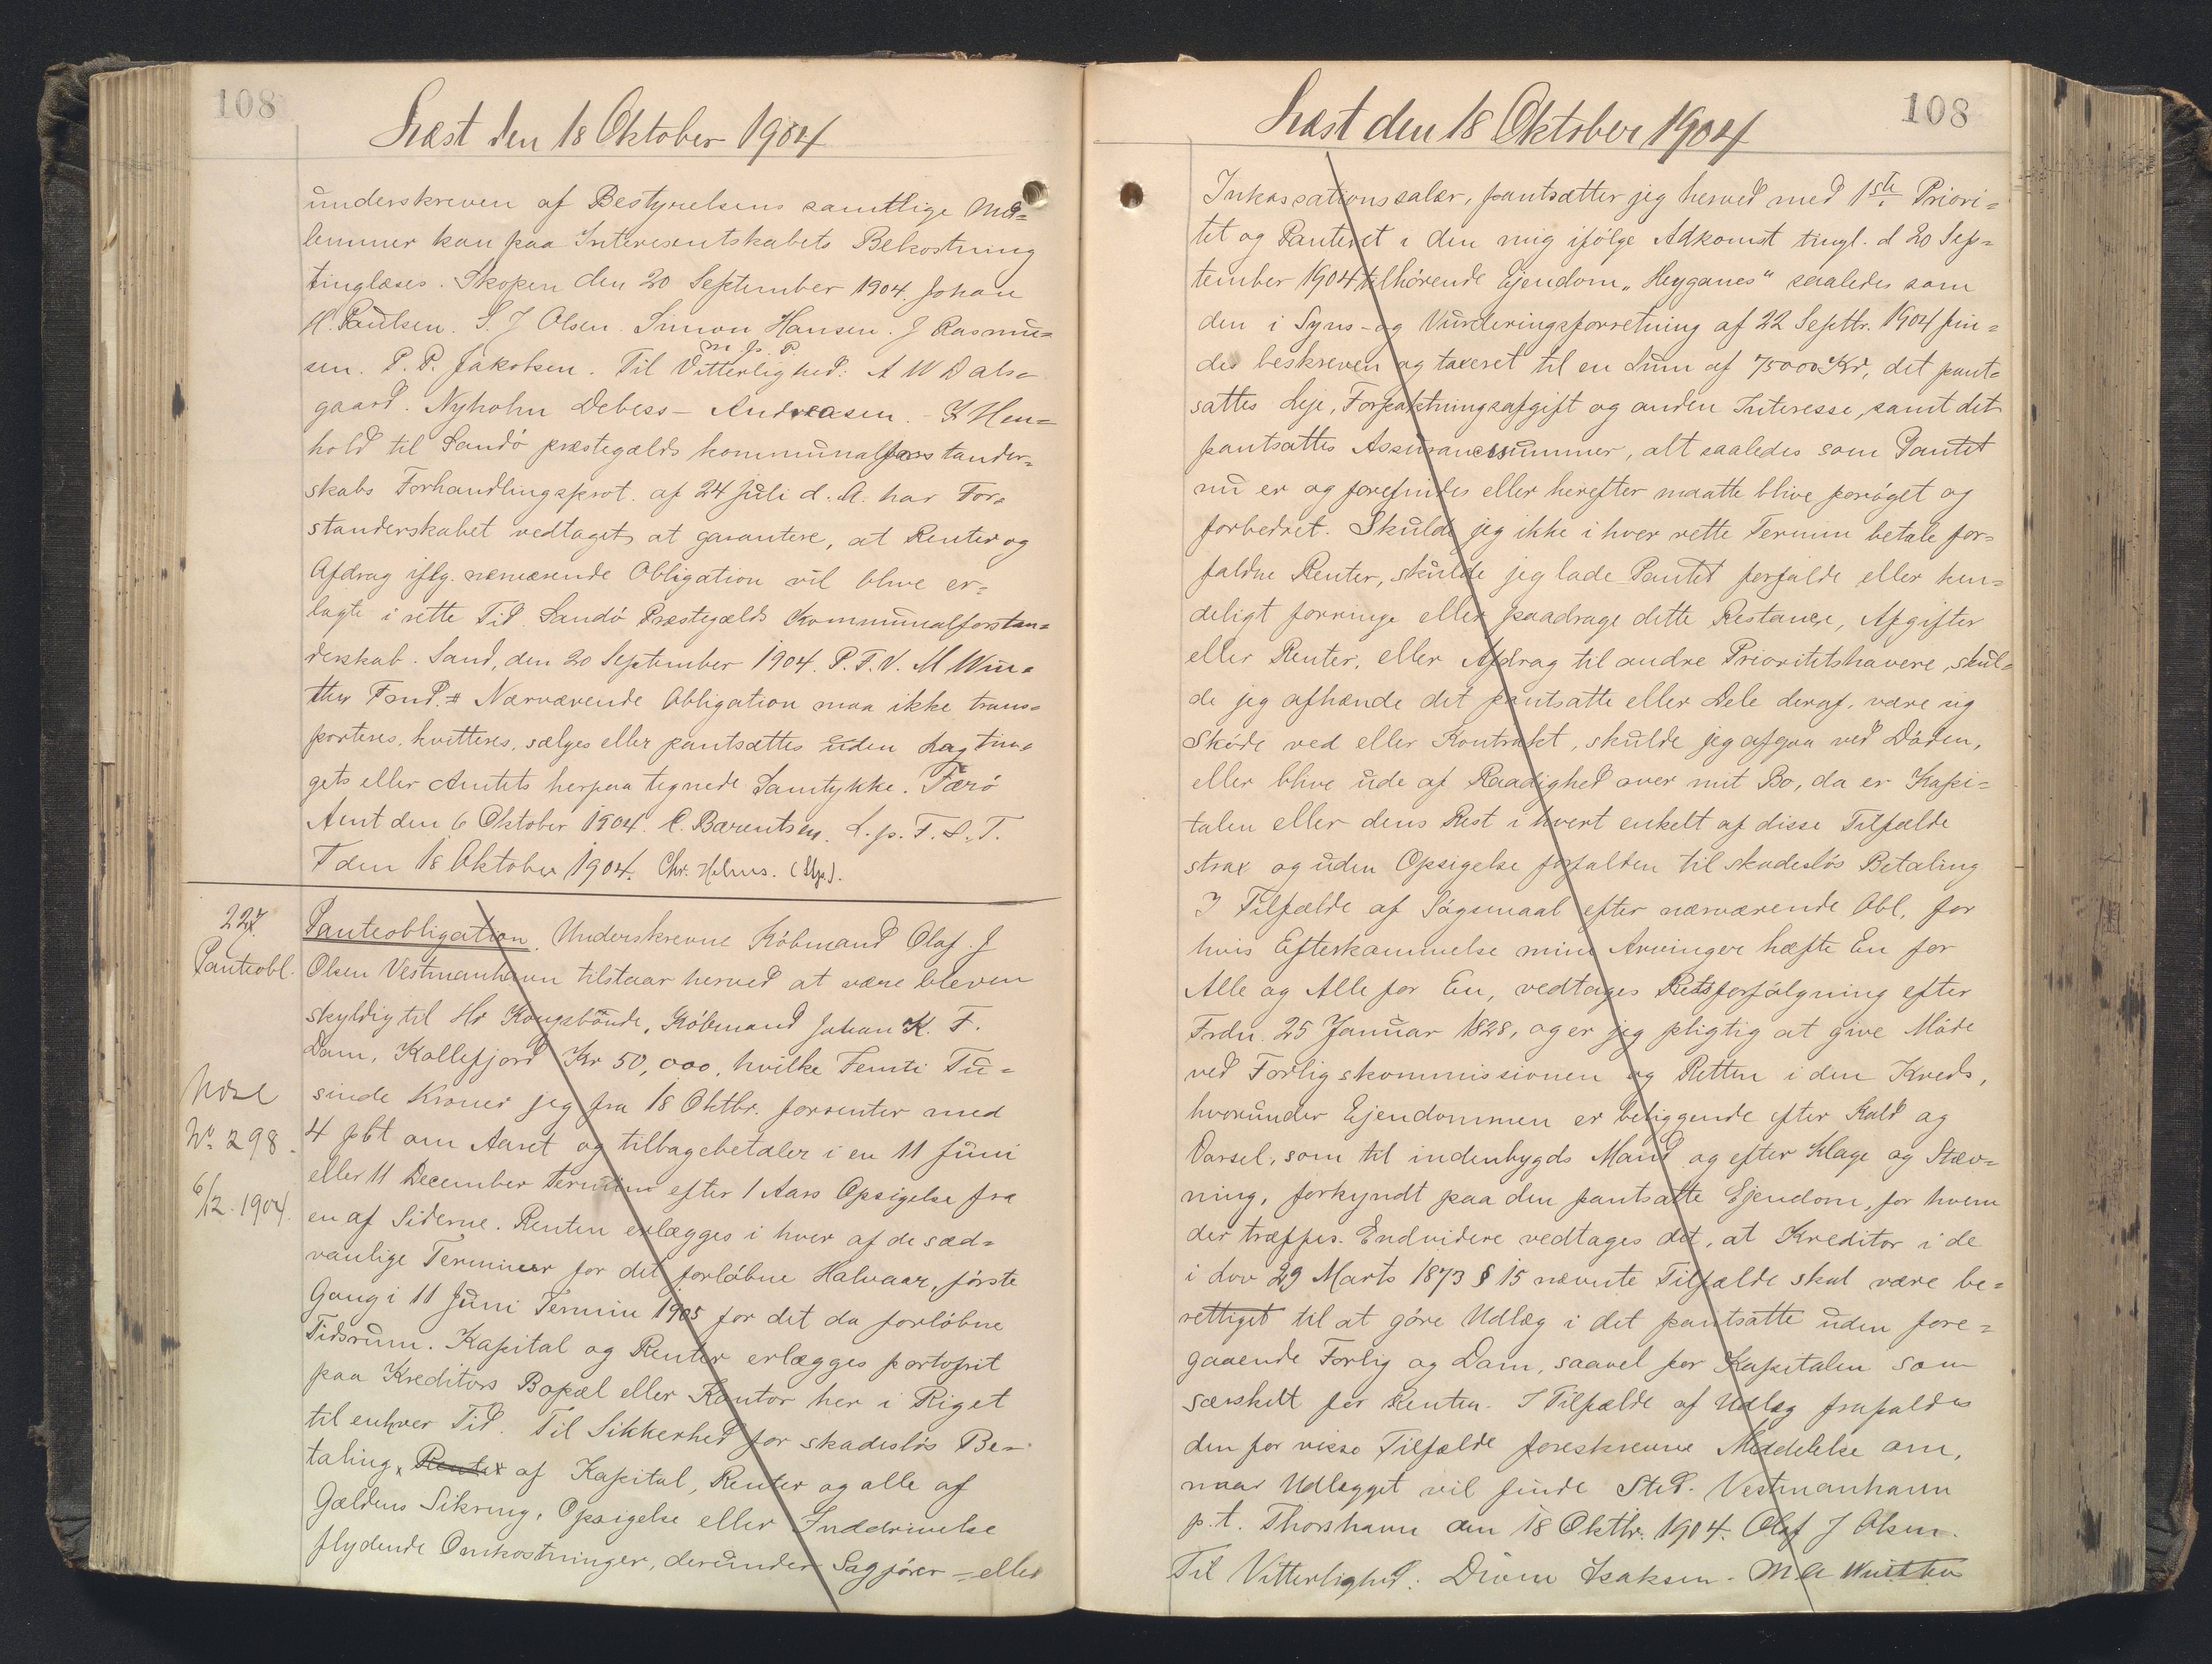 108
Læst den 18 Oktober 1904
underskreven af Bestyrelsens samtlige Med=
lemmer kan paa Interesentskabets Bekostning
tinglæses. Skopen den 20 September 1904. Johan
H. Paulsen. S. J Olsen. Simon Hansen. J Rasmu=
m. f. P
sen. P. P. Jakobsen. Til Vitterlighed: A W Dals=
gaard. Nyholm Debess - Andreasen. - I Hen=
hold til Sandö præstegælds kommunalforstander=
skabs Forhandlingsprot. af 24 Juli d. A. har For=
standerskabet vedtaget at garantere, at Renter og
Afdrag iflg. nærværende Obligation vil blive er=
lagte i rette Tid. Sandö Præstegælds Kommunalforstan=
derskab. Sand, den 20 September 1904. P. F. V. M Win=
ther Fmd. # Nærværende Obligation maa ikke trans=
porteres, kvitteres, sælges eller pantsættes uden Lagtin=
gets eller Amtets herpaa tegnede Samtykke. Færö
Amt den 6 Oktober 1904. C. Bærentsen. L. p. F. L. T.
T den 18 Oktober 1904. Chr. Holms.
227.
Panteobl.
Panteobligation. Underskrevne Köbmand Olaf. J
Olsen Vestmanhavn tilstaar herved at være bleven
skyldig til Hr Kongsbonde, Köbmand Johan K. F.
Dam, Kollefjord Kr 50,000, hvilke Femti Tu=
sinde Kroner jeg fra 18 Oktbr. forrenter med
4 pCt om Aaret og tilbagebetaler i en 11 Juni
eller 11 December Termin efter 1 Aars Opsigelse fra
en af Siderne. Renten erlægges i hver af de sæd=
vanlige Terminer for det forløbne Halvaar, förste
Gang i 11 Juni Termin 1905 for det da forlöbne
Tidsrum. Kapital og Renter erlægges portofrit
paa Kreditors Bopæl eller Kontor her i Riget
til enhver Tid. Til Sikkerhed for skadeslös Be=
taling, Renter af Kapital, Renter og alle af
Gældens Sikring, Opsigelse eller Inddrivelse
flydende Omkostninger, derunder Sagförer - eller
No 298.
6/12. 1904.
108
Læst den 18 Oktober 1904
Inkassationssalær, pantsætter jeg herved med 1ste Priori=
tet og Panteret i den mig ifölge Adkomst tingl. d 20 Sep=
tember 1904 tilhörende Ejendom "Heyganes" saaledes som
den i Syns- og Vurderingsforretning af 22 Septbr. 1904 fin=
des beskreven og taxeret til en Sum af 75000 Kr, det pant=
sattes Leje, Forpagtningsafgift og anden Interesse, samt det
pantsattes Assurancesummer, alt saaledes som Pantet
nu er og forefindes eller herefter maatte blive foröget og
forbedret. Skulde jeg ikke i hver rette Termin betale for=
faldne Renter, skulde jeg lade Pantet forfalde eller ken=
deligt forringe eller paadrage dette Restance, Afgifter
eller Renter, eller Afdrag til andre Prioritetshavere, skul=
de jeg afhænde det pantsatte eller Dele deraf, være sig
Sköde ved eller Kontrakt, skulde jeg afgaa ved Döden,
eller blive ude af Raadighed over mit Bo, da er Kapi=
talen eller dens Rest i hvert enkelt af disse Tilfælde
strax og uden Opsigelse forfalden til skadeslös Betaling
I Tilfælde af Sögsmaal efter nærværende Obl. for
hvis Efterkommelse mine Arvinger hæfte En for
Alle og Alle for En, vedtages Retsforfölgning efter
Frdn. 25 Januar 1828, og er jeg pligtig at give Möde
ved Forligskommissionen og Retten i den Kreds,
hvorunder Ejendommen er beliggende efter Kald og
Varsel, som til indenbygds Mand og efter Klage og Stæv=
ning, forkyndt paa den pantsatte Ejendom, for hvem
der træffes. Endvidere vedtages det, at Kreditor i de
i Lov 29 Marts 1873 § 15 nævnte Tilfælde skal være be=
rettiget til at göre Udlæg i det pantsatte uden fore=
gaaende Forlig og Dom, saavel for Kapitalen som
særskilt for Renten. I Tilfælde af Udlæg frafaldes
den for visse Tilfælde foreskrevne Meddelelse om,
naar Udlægget vil finde Sted. Vestmanhavn
p. t. Thorshavn den 18 Oktbr. 1904. Olaf J Olsen.
Til Vitterlighed: Isaksen. M A Winther